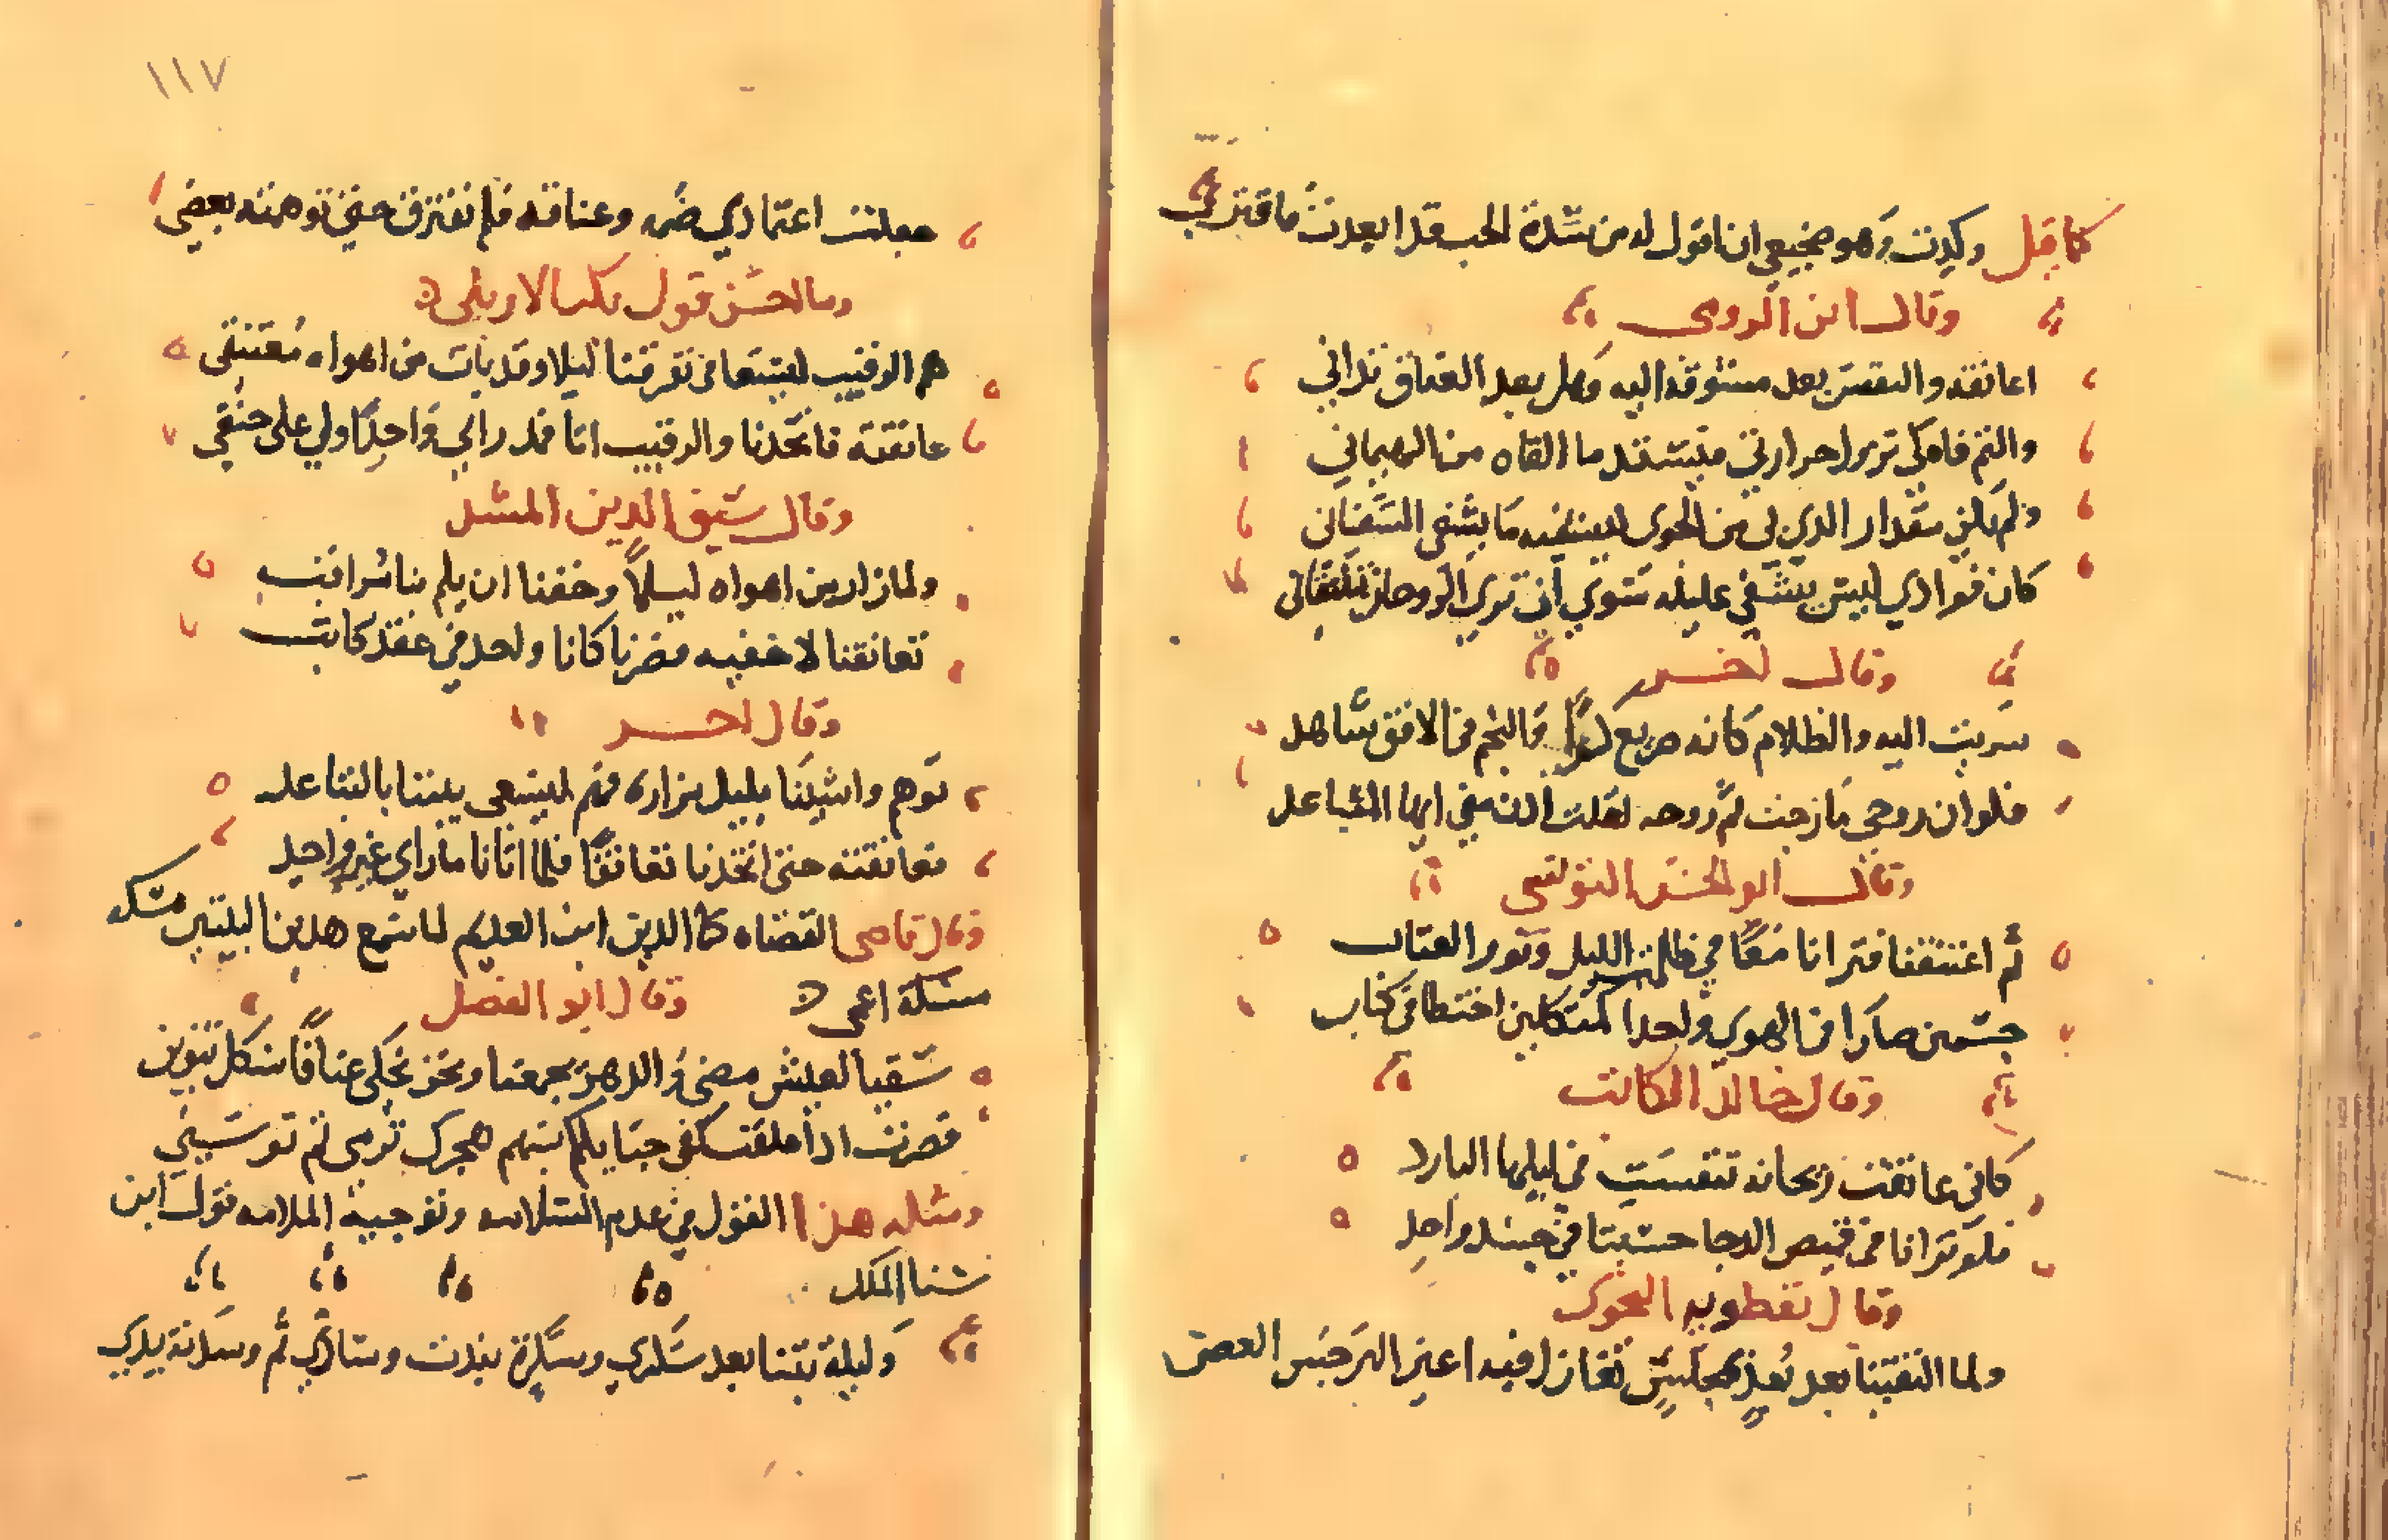 كما قيل وكدت وهو ضجيعي ان اقول له من شدة الحب قد ابعدت ما قترب
وقال ابن الرومى
اعانقه والنفس بعد مشوقة اليه وهل بعد العناق تداني
والثم فاه كي تزول حرارتي فيشتد ما القاه من الهيماني
ولم يكن مقدار الذي لي من الجوى ليشفيه ما يشفى الشفتانى
كان فوادي ليس يشفي غليله سوي ان تري الروحان تلتقيانى
وقال اخر
سريت اليه والظلام كانه صريع كرا والنجم في الافق شاهد
فلو ان روحي مازجت ثم روحه لقلت ادن مني ايها المتباعد
وقال ابو الحسن التونسي
ثم اعتنقنا فترانا معا في ظلمة الليل ونور العتاب
جسمين صارا في الهوي واحدا كمشكلين اختطا في كتاب
وقال خالد الكاتب
كاني عانقت ريحانة تنفست في ليلها البارد
فلو ترانا في قميص الدجا حسبتنا في جسد واحد
وقال نفطويه النحوى
ولما التقينا بعد بعد بمجلس نغازل فيه اعين النرجس الغض
١١٧
جعلت اعتمادي ضمه وعناقه فلم نفترق حتى توهمته بعضي
وما احسن قول الاربلى
هم الرقيب ليسعى في تفرقنا ليلا وقد بات من اهواه معتنقى
عانقته فاتحدنا والرقيب اتا فمذ راني واحدا ولي على حنقي
وقال سيف الدين المشد
ولما زار من اهواه ليلا وخفنا ان يلم بنا مراقب
تعانقنا لاخفيه فصرنا كانا واحد في عقد كاتب
وقال اخر
توهم واشينا بليل مزاره فهم ليسعى بيننا بالتباعد
فعانقته حتى اتحدنا تعانقا فلما اتانا ما راي غير واحد
وقال قاضى القضاه كما الدين ابن العديم لما سمع هذين البيتين مسكه
مسكة اعمى وقال ابو الفضل
سقيا لعيش مضى والدهر يجمعنا ونحن نحكي عناقا شكل تنوين
فصرت اذا علقت كفي حبايلكم بسهم هجرك ترمى ثم توسيني
ومثله هذا القول في عدم السلامه وتوجيه الملامه قول ابن
سنا الملك
وليلة بتنا بعد سكري وسكره نبذت وسادي ثم وسدته يدي